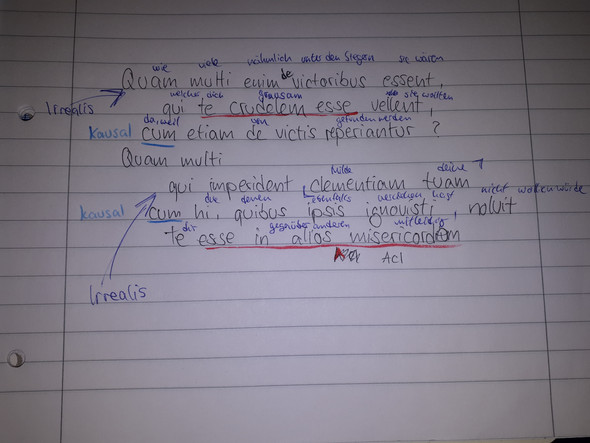 wie viele nähmlich unter den Siegern sie wären
Quam multi enim de victoribus essent,
welche dich grausam sie wollten
Irrealis qui te crudelem esse vellent,
da, weil von gefunden werden
kausal cum etiam de victis reperiantur ?
Quam multi
Milde deine
qui impedident, clementiam tuam
die denen verziehen hast nicht wollen würde
kausal cum hi, quibus ipsis ignovisti, noluit
dir gegenüber anderen mitleidig
te esse in alios misericordem
AcI
Irrealis